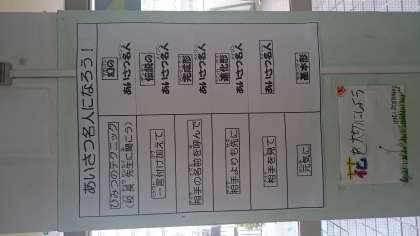 あいさつ名人になろう！
幻の
あいさつ名人
ひみつのテクニック
(校長先生に聞こう)
伝説の
あいさつ名人
一言付け加えて
完成形
あいさつ名人
相手の名前を呼んで
進化形
あいさつ名人
相手よりも先に
あいさつ名人
相手を見て
基本形
元気に
花を大切にしよう